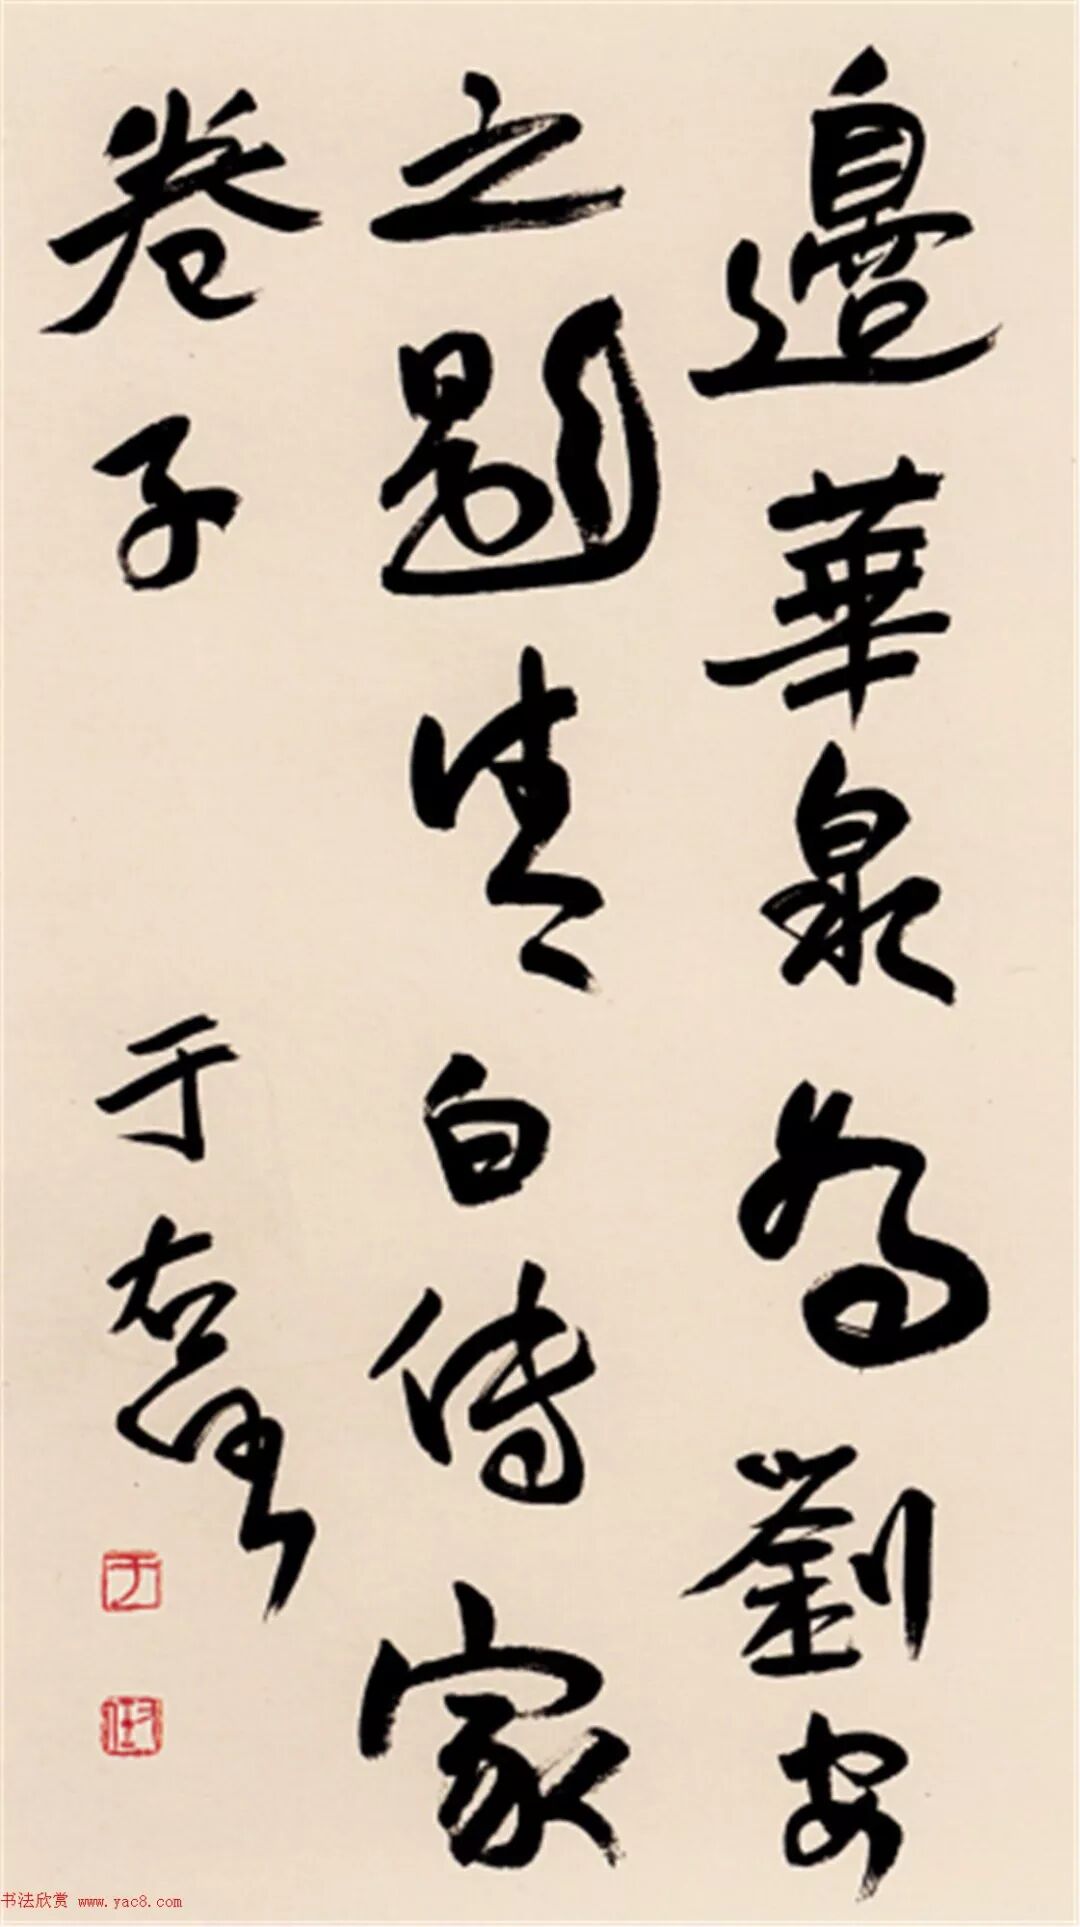 邊華泉為劉安
之題清白傳家
卷子 于
于
书法欣赏 www.yac8.com